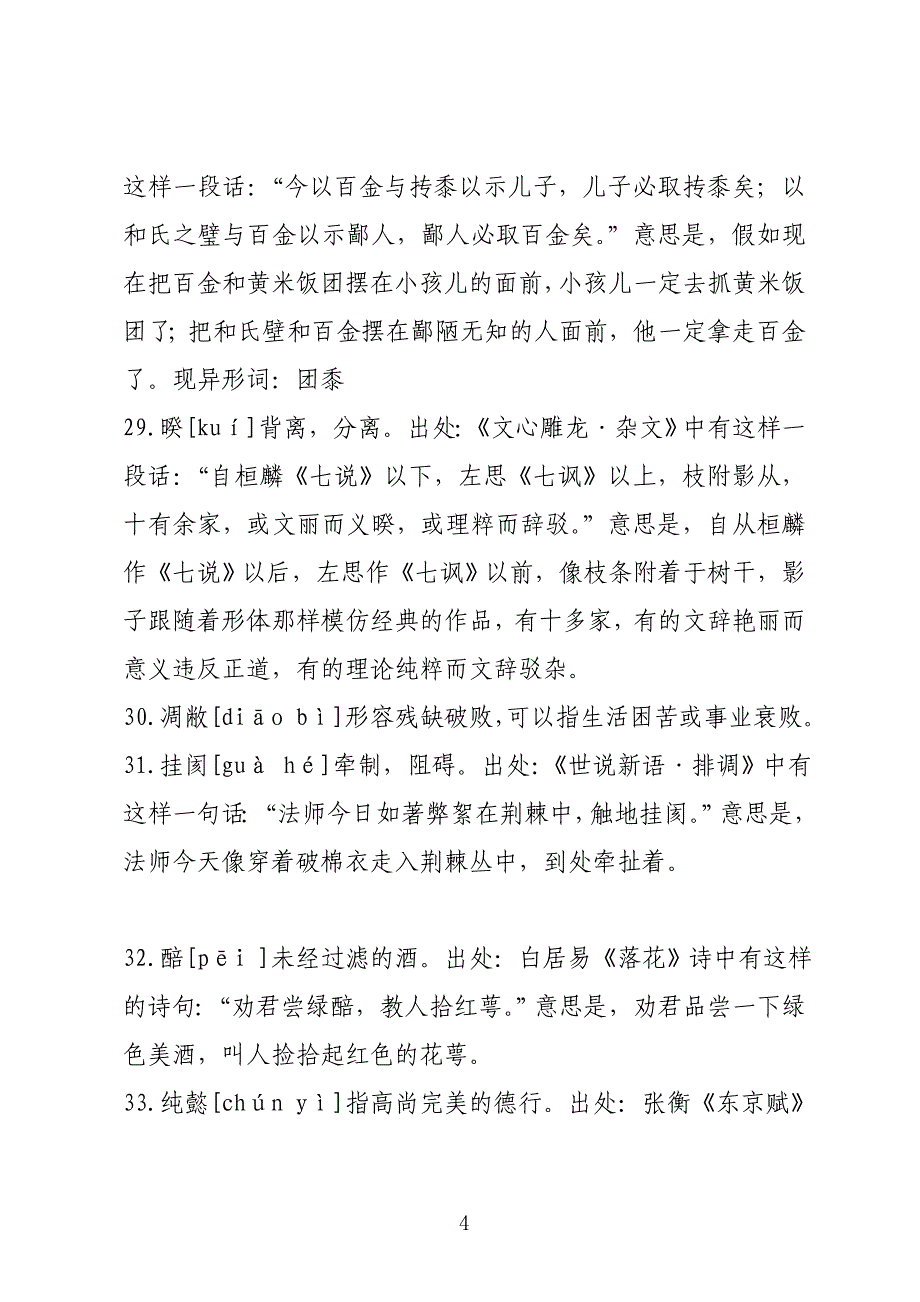 这样一段话：“今以百金与抟黍以示儿子，儿子必取抟黍矣；以
和氏之璧与百金以示鄙人，鄙人必取百金矣。”意思是，假如现
在把百金和黄米饭团摆在小孩儿的面前，小孩儿一定去抓黄米饭
团了；把和氏壁和百金摆在鄙陋无知的人面前，他一定拿走百金
了。现异形词：团黍
29.暌[kuí]背离，分离。出处：《文心雕龙·杂文》中有这样一
段话：“自桓麟《七说》以下，左思《七讽》以上，枝附影从，
十有余家，或文丽而义暌，或理粹而辞驳。”意思是，自从桓麟
作《七说》以后，左思作《七讽》以前，像枝条附着于树干，影
子跟随着形体那样模仿经典的作品，有十多家，有的文辞艳丽而
意义违反正道，有的理论纯粹而文辞驳杂。
30.凋敝[diāo bì]形容残缺破败，可以指生活困苦或事业衰败。
31.挂阂[guà hé]牵制，阻碍。出处：《世说新语·排调》中有
这样一句话：“法师今日如著弊絮在荆棘中，触地挂阂。”意思是，
法师今天像穿着破棉衣走入荆棘丛中，到处牵扯着。
32.醅[pēi]未经过滤的酒。出处：白居易《落花》诗中有这样
的诗句：“劝君尝绿醅，教人拾红萼。”意思是，劝君品尝一下绿
色美酒，叫人捡拾起红色的花萼。
33.纯懿[chún yì]指高尚完美的德行。出处：张衡《东京赋》
4